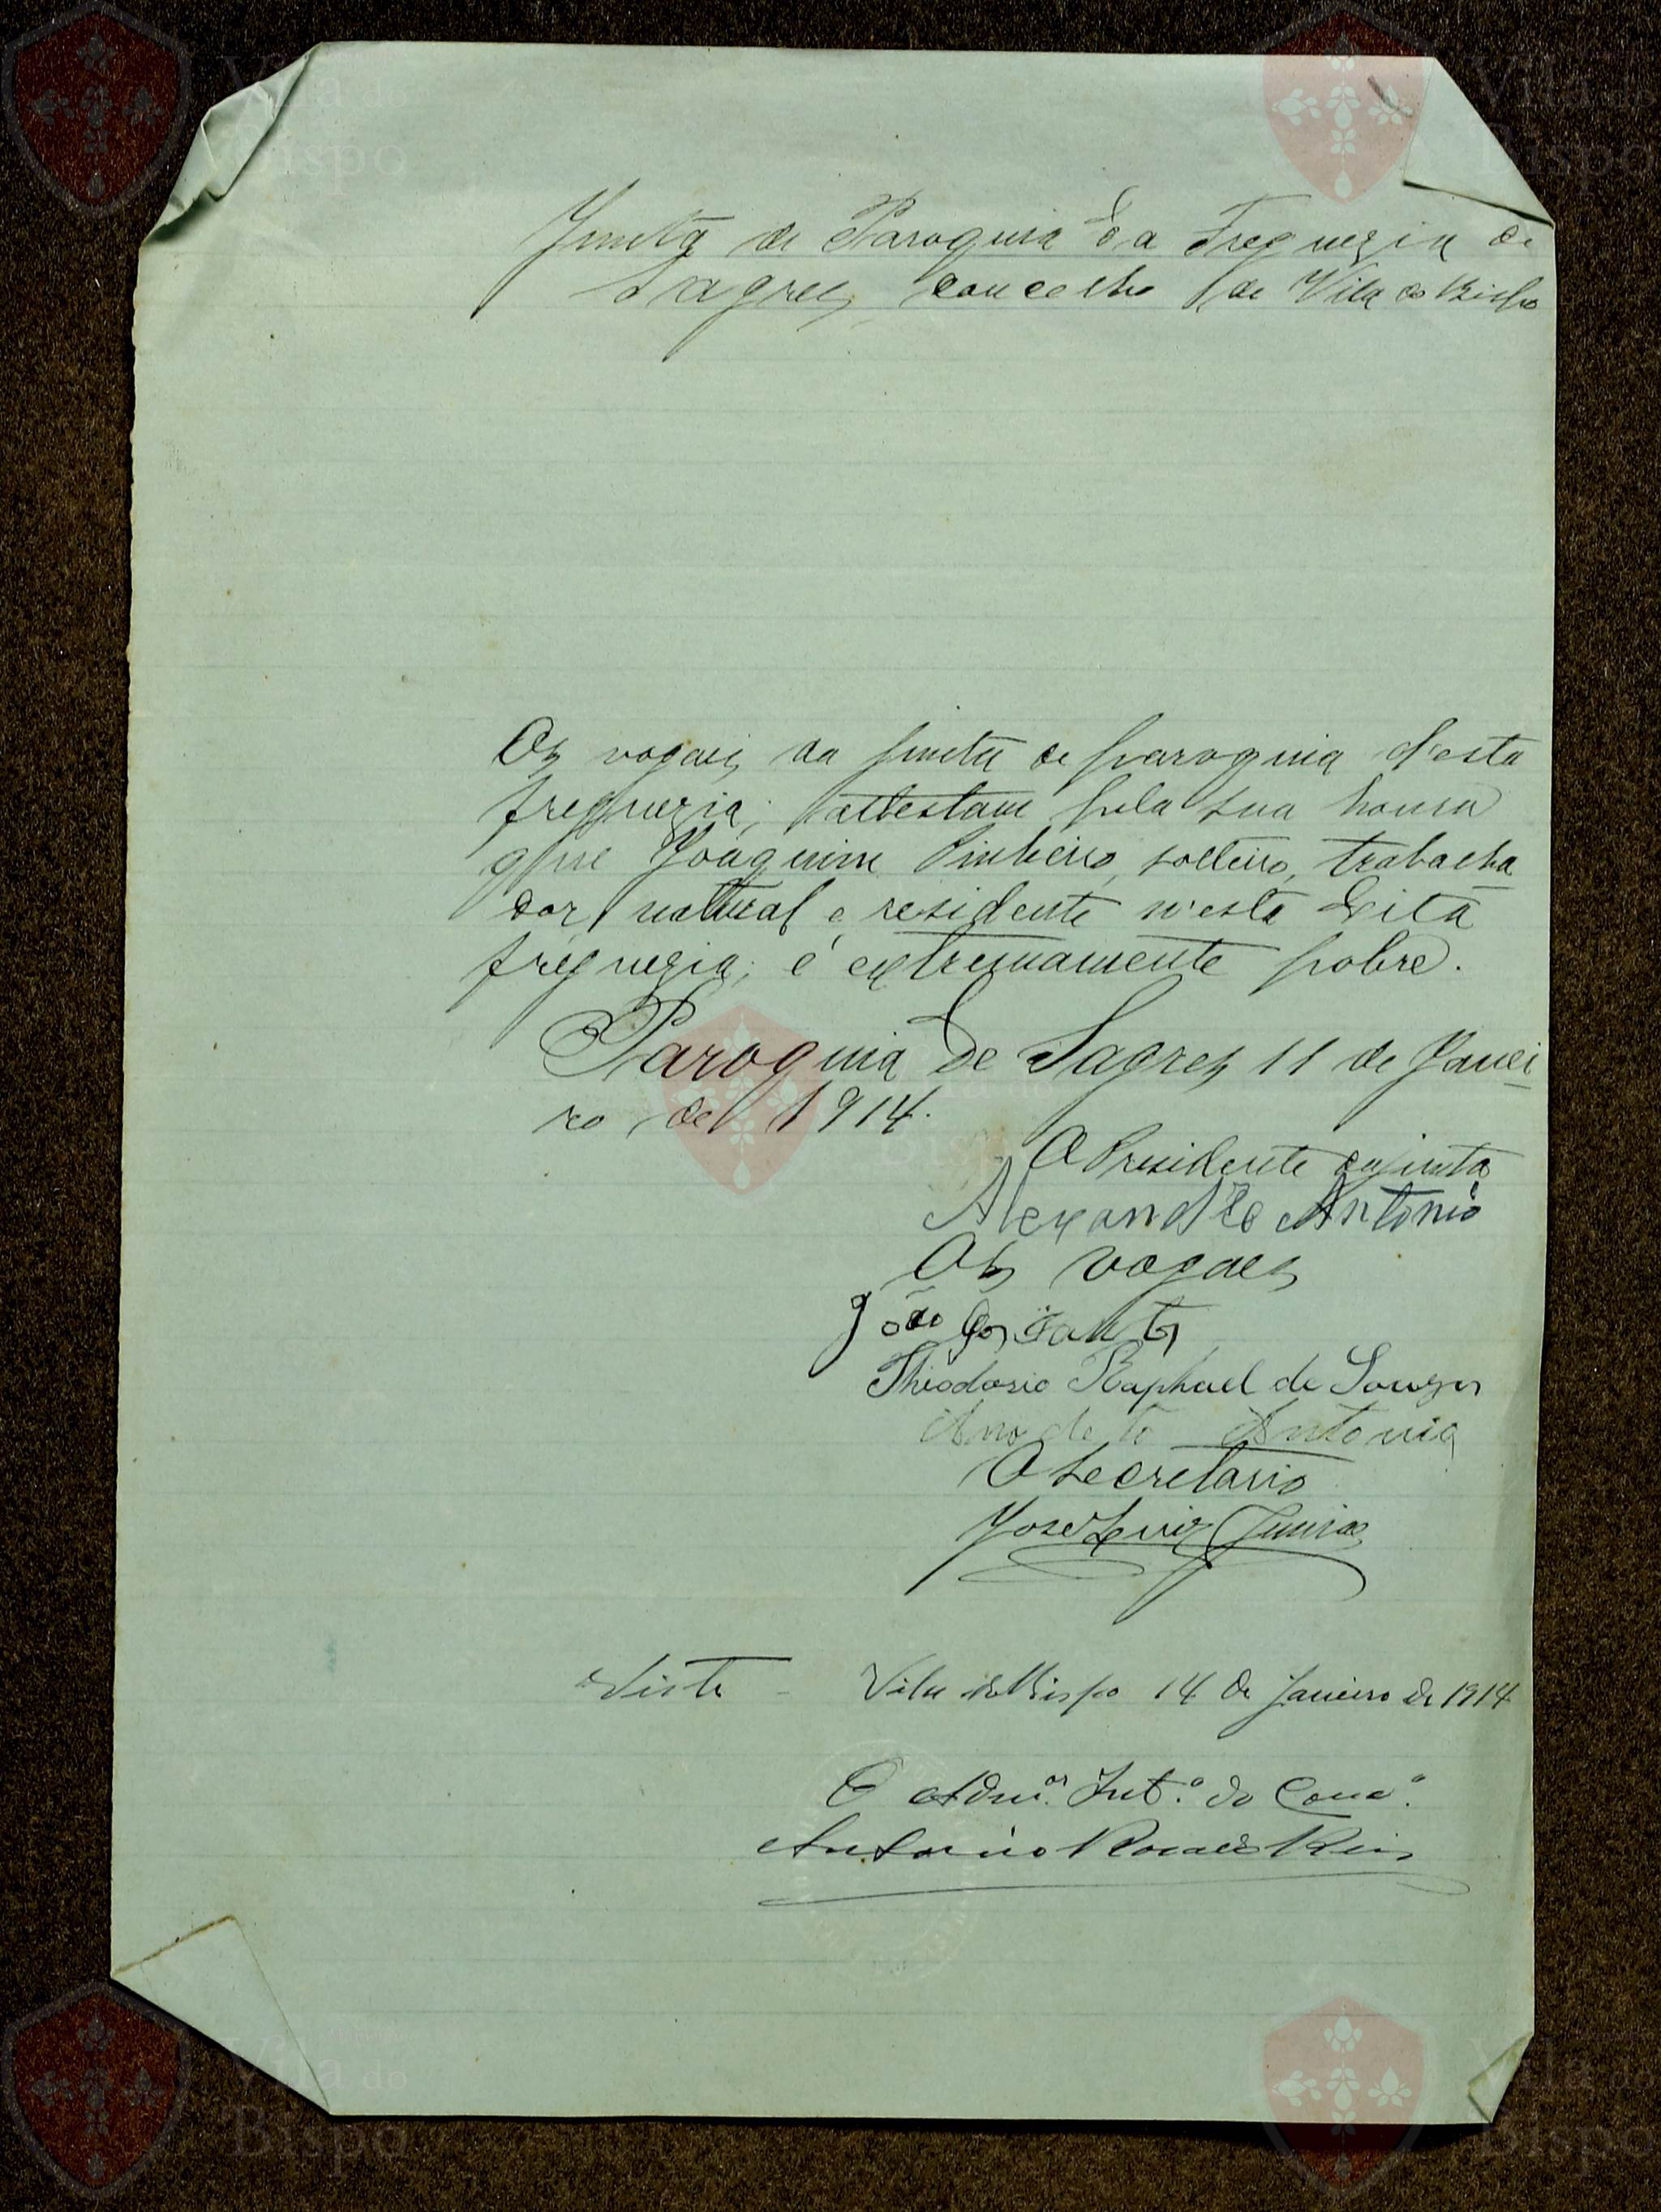 Junta de Paroquia da Freguezia de
Sagres, concelho de Vila do Bispo
Os vogaes da junta de paroquia d'esta
freguezia; attestam pela sua honra
que Joaquim Pinheiro, solteiro, trabalha
dor, natural e residente n'esta dita
freguezia; é extremamente pobre.
Paroquia de Sagres 11 de Janei
ro de 1914.
O Presidente da junta
Alexandre Antonio
Os vogaes
João dos Santos
Theodosio Raphael de Souza
Antonio
O Secretario
José Luiz Junior
Visto - Vila do Bispo 14 de Janeiro de 1914
O Adm.or Int.o do Conc.o
Antonio Reis
Vila do
Bispo